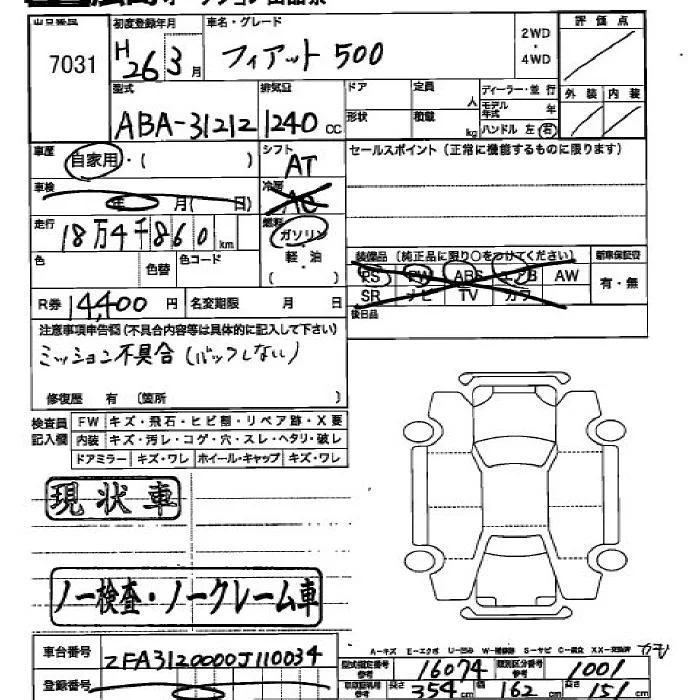 出品番号 初度登録年月 車名・グレード 評価点
7031 H26 3月 フィアット500 2WD・4WD
型式 排気量 ドア 定員 人 ディーラー・並行 外装 内装
ABA-31212 1240cc 形状 積載 kg モデル年式 年 ハンドル 左 右
車歴 自家用・( ) シフト AT セールスポイント(正常に機能するものに限ります)
車検 年 月( 日) 冷房 AC
走行 18万4千860km 燃料 ガソリン 軽・油 ( )
色 色替 色コード
装備品 [純正品に限り○をつけてください] 新車保証書
PS PW ABS エアB AW 有・無
SR ナビ TV カワ
R券 14,400円 名変期限 月 日 後日品
注意事項申告欄(不具合内容等は具体的に記入して下さい)
ミッション不具合(バックしない)
修復歴 有 [箇所 ]
検査員記入欄 FW キズ・飛石・ヒビ割・リペア跡・X要
内装 キズ・汚レ・コゲ・穴・スレ・ヘタリ・破レ
ドアミラー キズ・ワレ ホイール・キャップ キズ・ワレ
現状車
ノー検査・ノークレーム車
A-キズ E-エクボ U-凹み W-補修跡 S-サビ C-腐食 XX-交換済
車台番号 ZFA3120000J110034 型式指定番号 参考 16074 類別区分番号 参考 1001
登録番号 長さ 354cm 162cm 高さ 151cm